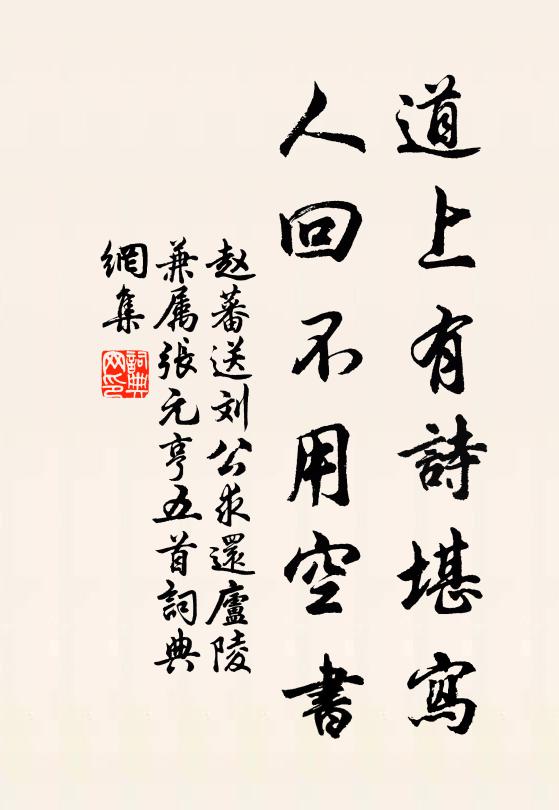 道上有詩堪寫
人回不用空書
赵蕃送刘公求還廬陵
兼属張元亨五首詞典
網集
詞典
网印